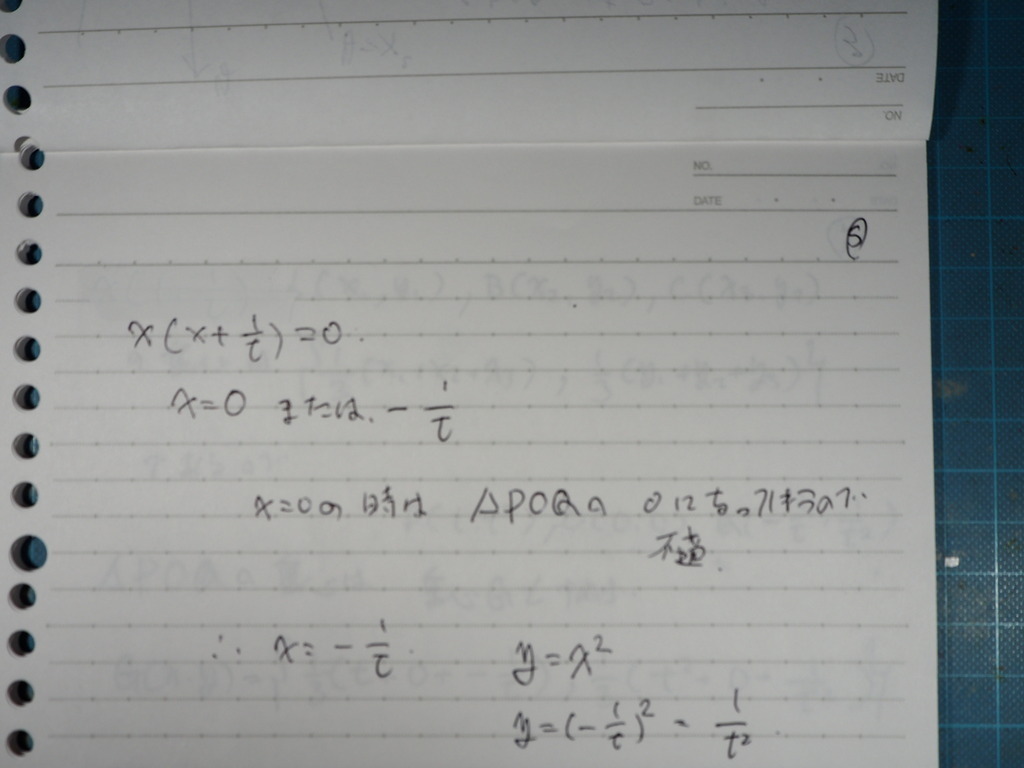 NO.
DATE
x(x+1/t)=0.
x=0 または、-1/t
x=0の時は △POQの Oになってしまうので
不適.
∴ x=-1/t.
y=x²
y=(-1/t)²=1/t²